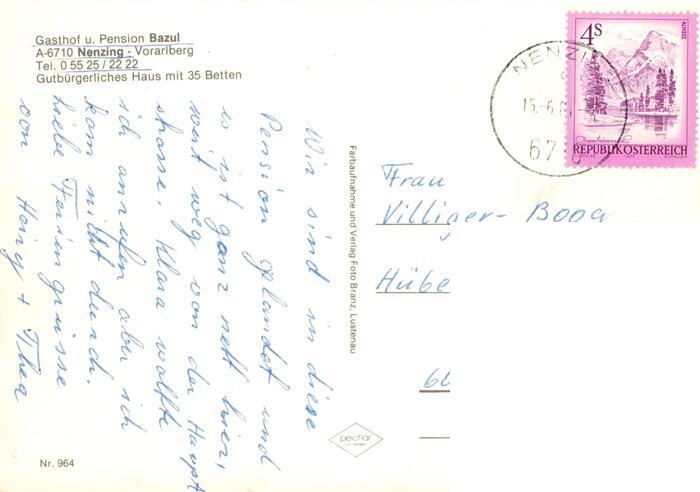 Gasthof u. Pension Bazul
A-6710 Nenzing - Vorarlberg
Tel. 0 55 25 / 22 22
Gutbürgerliches Haus mit 35 Betten
Wir sind in diese
Pension gelandet und
es ist ganz nett hier,
weit weg von der Haupt
strasse. Klara wollte
ich anrufen aber ich
kam nicht durch.
Liebe Feriengrüsse
von Heiny + Thea
Nr. 964
Farbaufnahme und Verlag Foto Branz, Lustenau
peichar
4S
ALMSEE
REPUBLIK ÖSTERREICH
NENZIN
15.-6.
67
Frau
Villiger-Booa
Hübe